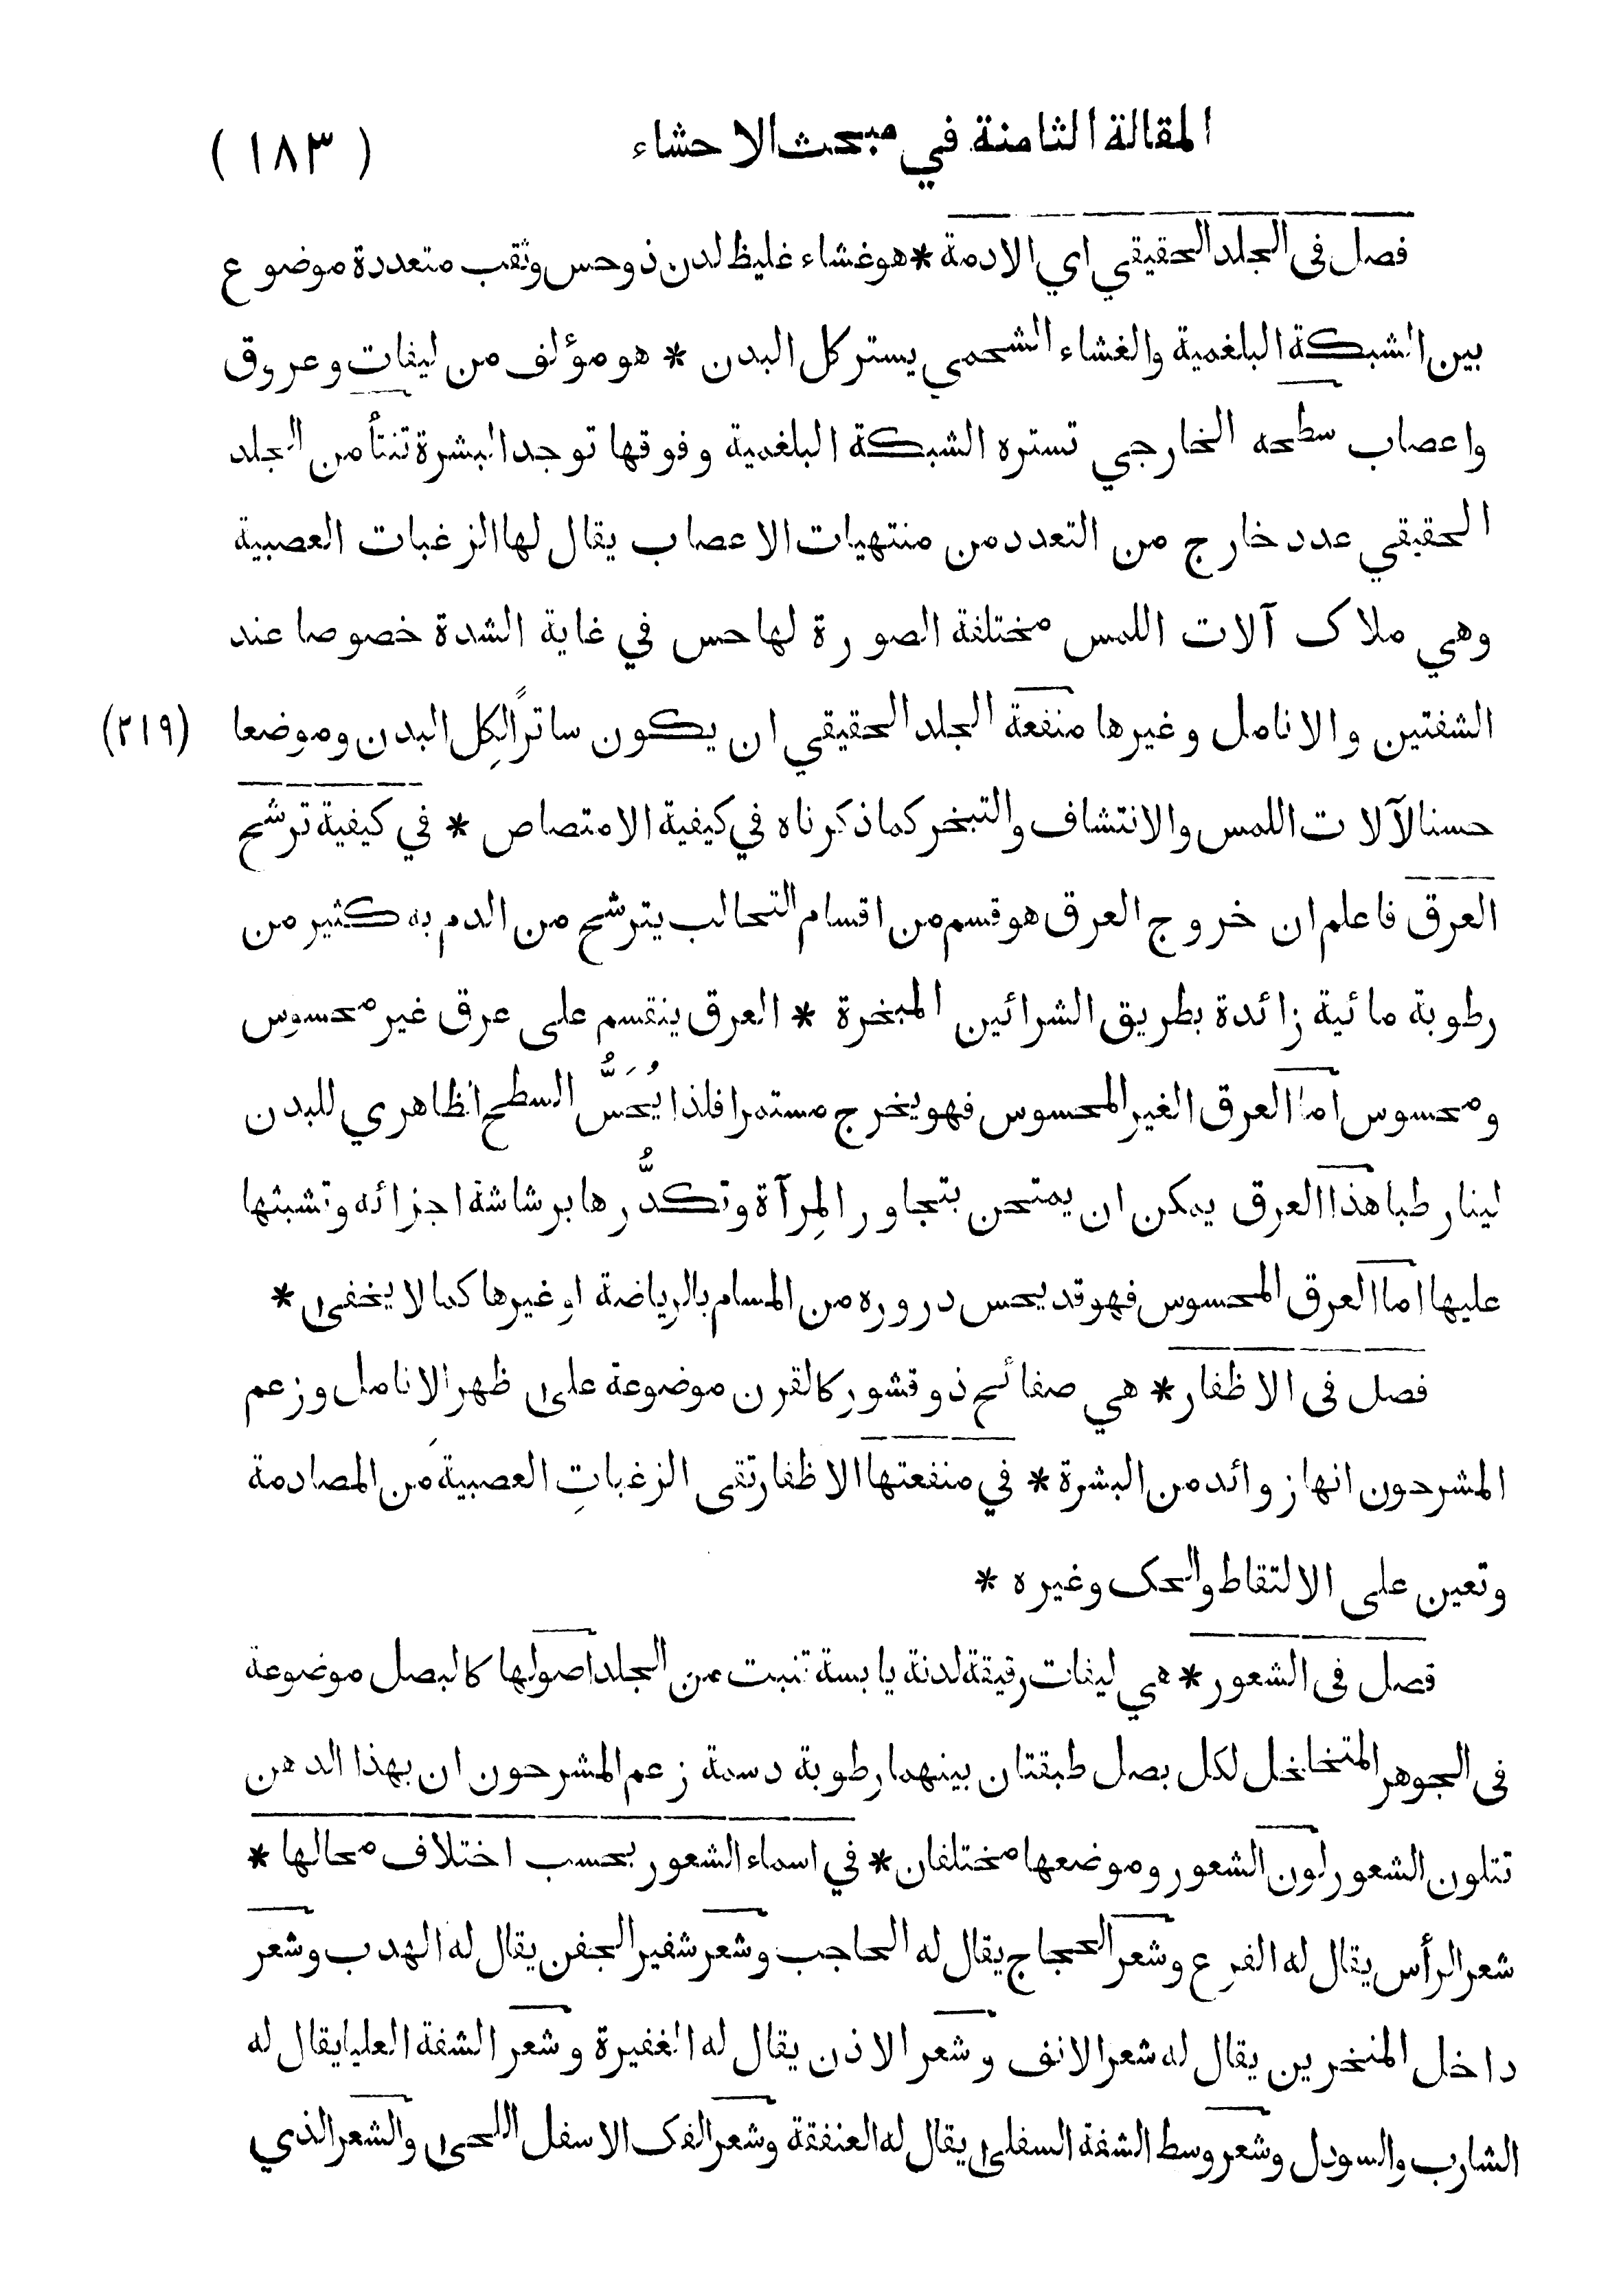 المقالة الثامنة في مبحث الاحشاء
( ١٨٣ )
فصل فى الجلد الحقيقي اي الادمة * هو غشاء غليظ لدن ذو حس وثقب متعددة موضوع
بين الشبكة البلغمية والغشاء الشحمي يستر كل البدن * هو مؤلف من ليفات وعروق
واعصاب سطحه الخارجي تستره الشبكة البلغمية وفوقها توجد البشرة تنتأ من الجلد
الحقيقي عدد خارج من التعدد من منتهيات الاعصاب يقال لها الزغبات العصبية
وهي ملاك آلات اللمس مختلفة الصورة لها حس في غاية الشدة خصوصا عند
الشفتين والانامل وغيرها منفعة الجلد الحقيقي ان يكون ساترًا لِكل البدن وموضعا
(٢١٩)
حسنا لآلات اللمس والانتشاف والتبخر كما ذكرناه في كيفية الامتصاص * في كيفية ترشح
العرق فاعلم ان خروج العرق هو قسم من اقسام التحالب يترشح من الدم به كثير من
رطوبة مائية زائدة بطريق الشرائين المبخرة * العرق ينقسم على عرق غير محسوس
ومحسوس اما العرق الغير المحسوس فهو يخرج مستمرا فلذا يُحَسُّ السطح الظاهري للبدن
لينا رطبا هذا العرق يمكن ان يمتحن بتجاور المِرآة وتكدُّرها برشاشة اجزائه وتشبثها
عليها اما العرق المحسوس فهو قد يحس دروره من المسام بالرياضة او غيرها كما لا يخفى *
فصل فى الاظفار * هي صفائح ذو قشور كالقرن موضوعة على ظهر الانامل وزعم
المشرحون انها زوائد من البشرة * في منفعتها الاظفار تقى الزغباتِ العصبيةَ من المصادمة
وتعين على الالتقاط والحك وغيره *
فصل فى الشعور * هي ليفات رقيقة لدنة يابسة تنبت من الجلد اصولها كالبصل موضوعة
فى الجوهر المتخلخل لكل بصل طبقتان بينهما رطوبة دسمة زعم المشرحون ان بهذا الدهن
تتلون الشعور لون الشعور وموضعها مختلفان * في اسماء الشعور بحسب اختلاف محالها *
شعر الرأس يقال له الفرع وشعر الحجاج يقال له الحاجب وشعر شفير الجفن يقال له الهدب وشعر
داخل المنخرين يقال له شعر الانف وشعر الاذن يقال له الغفيرة وشعر الشفة العليا يقال له
الشارب والسودل وشعر وسط الشفة السفلى يقال له العنفقة وشعر الفك الاسفل اللحى والشعر الذي